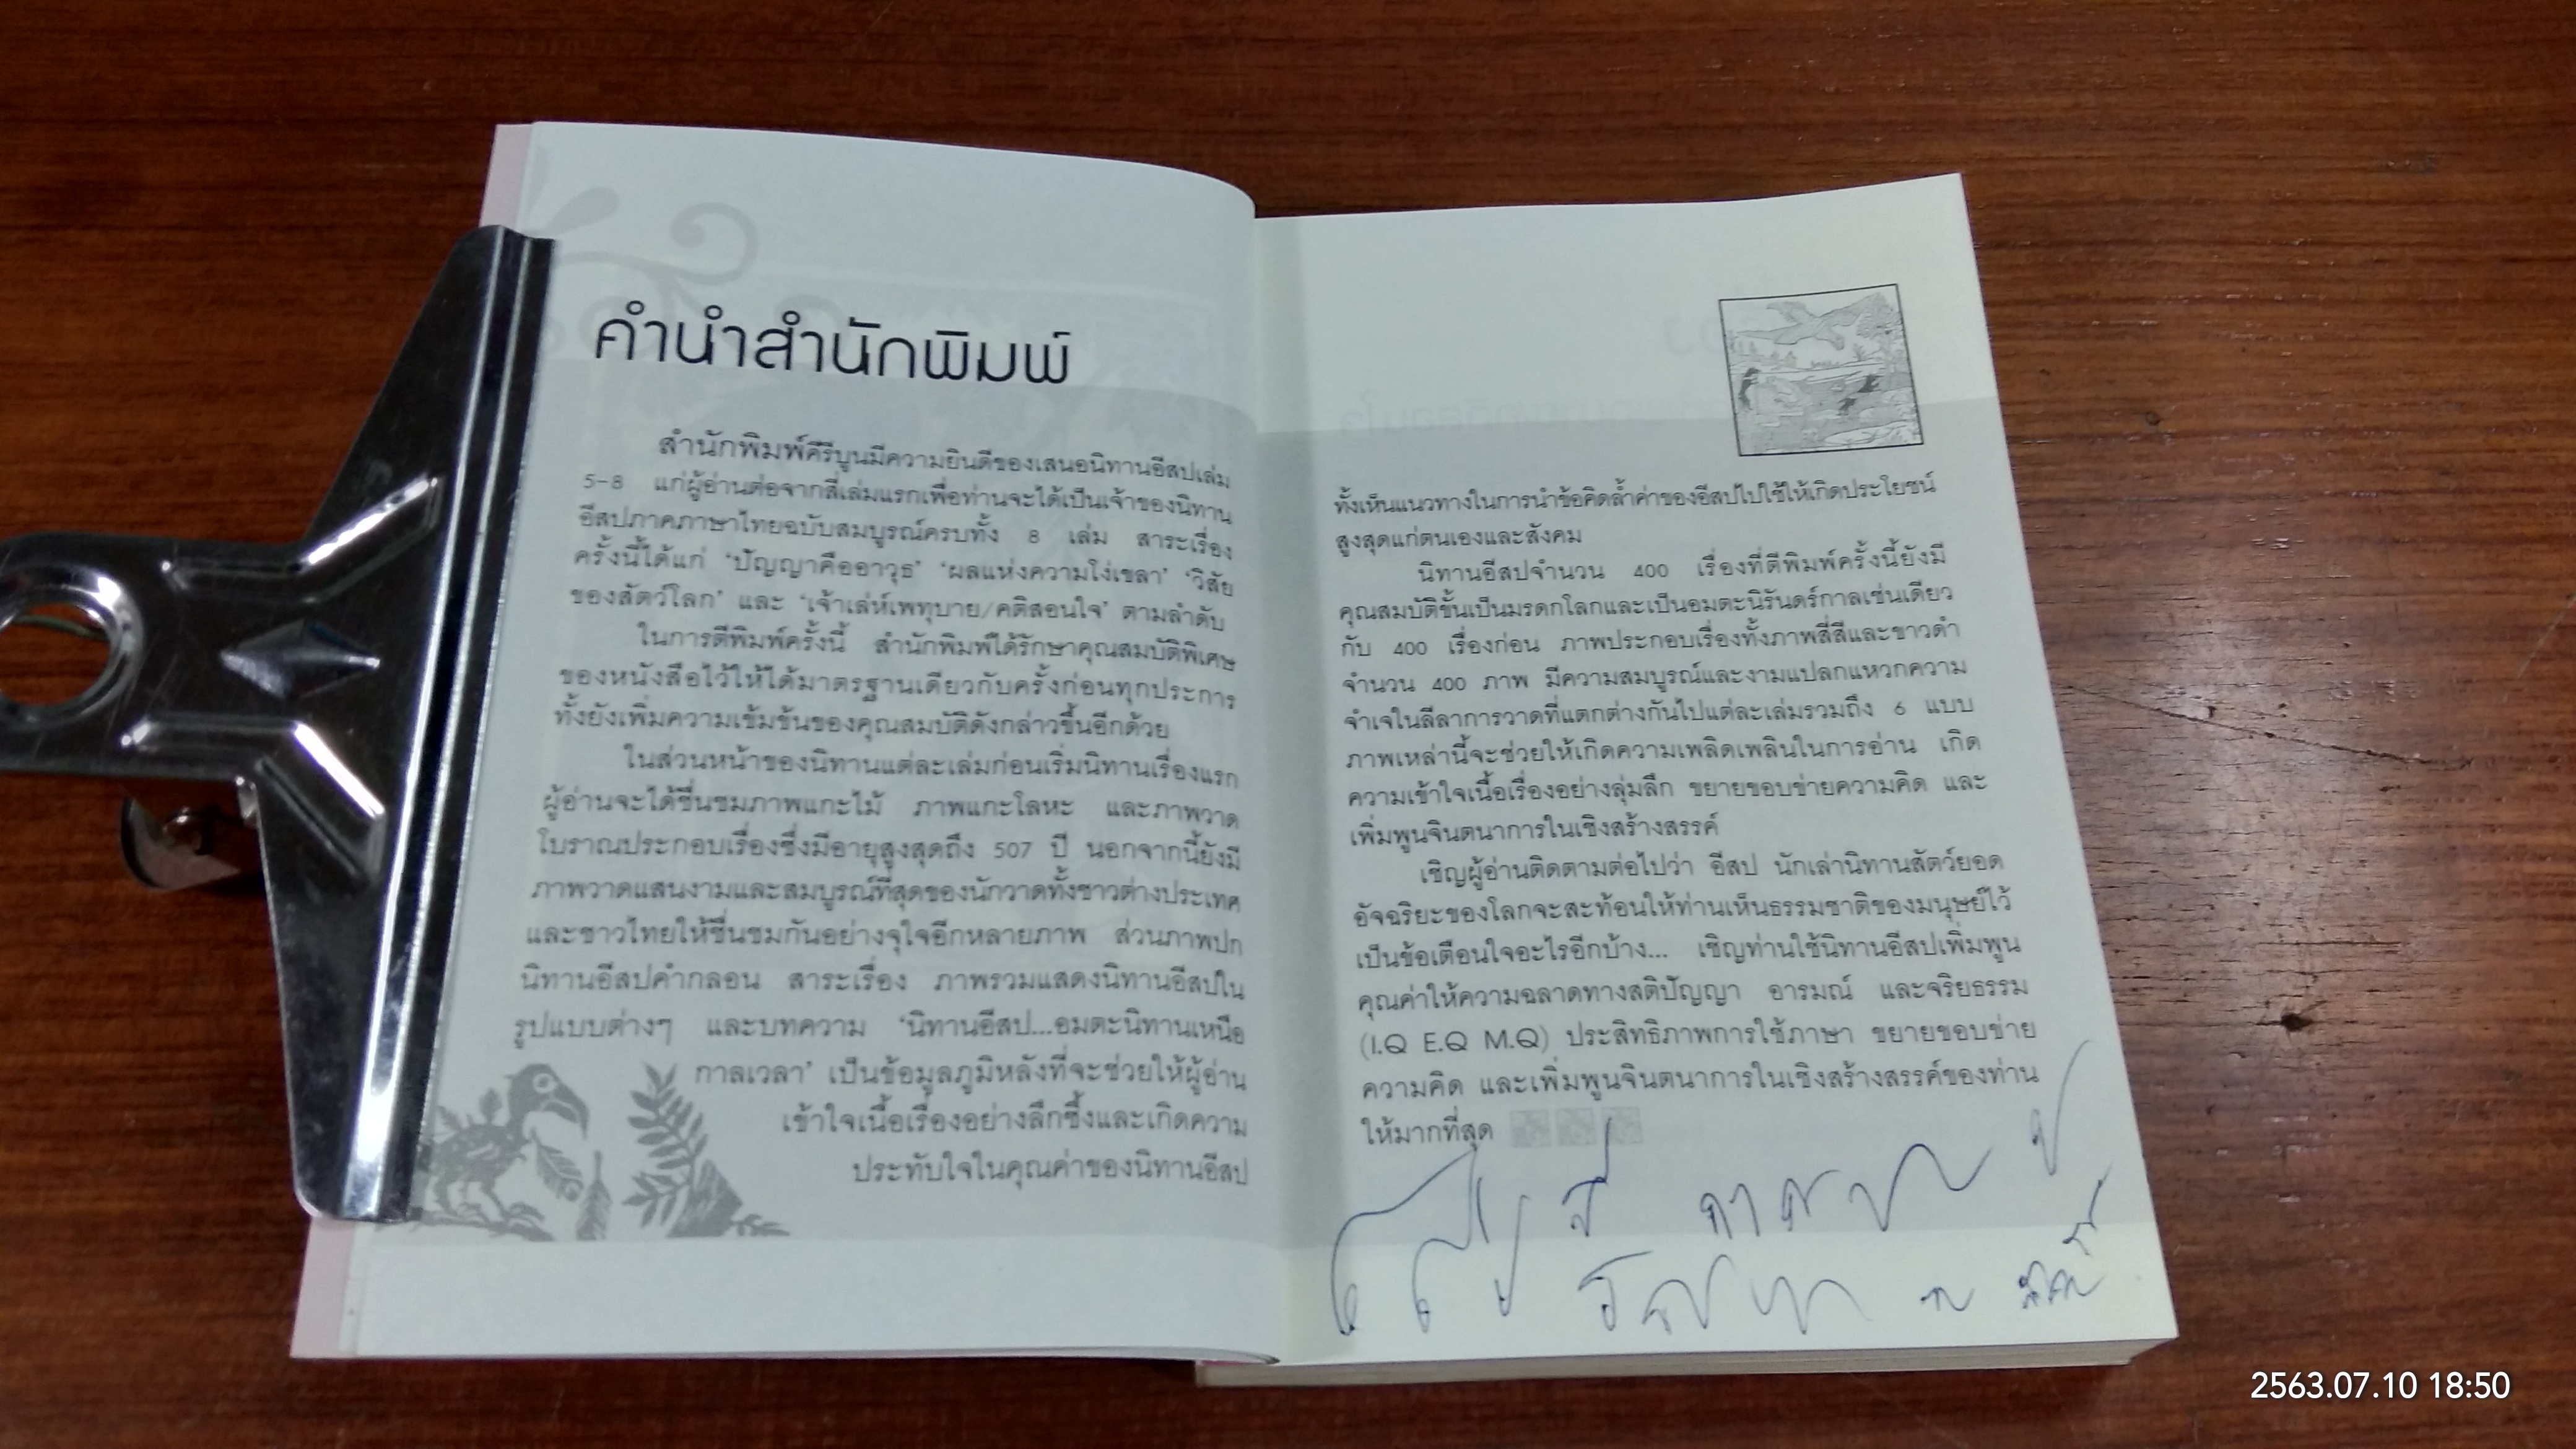 คำนำสำนักพิมพ์
สำนักพิมพ์คีรีบูนมีความยินดีขอเสนอนิทานอีสปเล่ม
5-8 แก่ผู้อ่านต่อจากสี่เล่มแรกเพื่อท่านจะได้เป็นเจ้าของนิทาน
อีสปภาคภาษาไทยฉบับสมบูรณ์ครบทั้ง 8 เล่ม สาระเรื่อง
ครั้งนี้ได้แก่ 'ปัญญาคืออาวุธ' 'ผลแห่งความโง่เขลา' 'วิสัย
ของสัตว์โลก' และ 'เจ้าเล่ห์เพทุบาย/คติสอนใจ' ตามลำดับ
ในการตีพิมพ์ครั้งนี้ สำนักพิมพ์ได้รักษาคุณสมบัติพิเศษ
ของหนังสือไว้ให้ได้มาตรฐานเดียวกับครั้งก่อนทุกประการ
ทั้งยังเพิ่มความเข้มข้นของคุณสมบัติดังกล่าวขึ้นอีกด้วย
ในส่วนหน้าของนิทานแต่ละเล่มก่อนเริ่มนิทานเรื่องแรก
ผู้อ่านจะได้ชื่นชมภาพแกะไม้ ภาพแกะโลหะ และภาพวาด
โบราณประกอบเรื่องซึ่งมีอายุสูงสุดถึง 507 ปี นอกจากนี้ยังมี
ภาพวาดแสนงามและสมบูรณ์ที่สุดของนักวาดทั้งชาวต่างประเทศ
และชาวไทยให้ชื่นชมกันอย่างจุใจอีกหลายภาพ ส่วนภาพปก
นิทานอีสปคำกลอน สาระเรื่อง ภาพรวมแสดงนิทานอีสปใน
รูปแบบต่างๆ และบทความ 'นิทานอีสป...อมตะนิทานเหนือ
กาลเวลา' เป็นข้อมูลภูมิหลังที่จะช่วยให้ผู้อ่าน
เข้าใจเนื้อเรื่องอย่างลึกซึ้งและเกิดความ
ประทับใจในคุณค่าของนิทานอีสป
ทั้งเห็นแนวทางในการนำข้อคิดล้ำค่าของอีสปไปใช้ให้เกิดประโยชน์
สูงสุดแก่ตนเองและสังคม
นิทานอีสปจำนวน 400 เรื่องที่ตีพิมพ์ครั้งนี้ยังมี
คุณสมบัติชั้นเป็นมรดกโลกและเป็นอมตะนิรันดร์กาลเช่นเดียว
กับ 400 เรื่องก่อน ภาพประกอบเรื่องทั้งภาพสี่สีและขาวดำ
จำนวน 400 ภาพ มีความสมบูรณ์และงามแปลกแหวกความ
จำเจในลีลาการวาดที่แตกต่างกันไปแต่ละเล่มรวมถึง 6 แบบ
ภาพเหล่านี้จะช่วยให้เกิดความเพลิดเพลินในการอ่าน เกิด
ความเข้าใจเนื้อเรื่องอย่างลุ่มลึก ขยายขอบข่ายความคิด และ
เพิ่มพูนจินตนาการในเชิงสร้างสรรค์
เชิญผู้อ่านติดตามต่อไปว่า อีสป นักเล่านิทานสัตว์ยอด
อัจฉริยะของโลกจะสะท้อนให้ท่านเห็นธรรมชาติของมนุษย์ไว้
เป็นข้อเตือนใจอะไรอีกบ้าง... เชิญท่านใช้นิทานอีสปเพิ่มพูน
คุณค่าให้ความฉลาดทางสติปัญญา อารมณ์ และจริยธรรม
(I.Q E.Q M.Q) ประสิทธิภาพการใช้ภาษา ขยายขอบข่าย
ความคิด และเพิ่มพูนจินตนาการในเชิงสร้างสรรค์ของท่าน
ให้มากที่สุด
2563.07.10 18:50